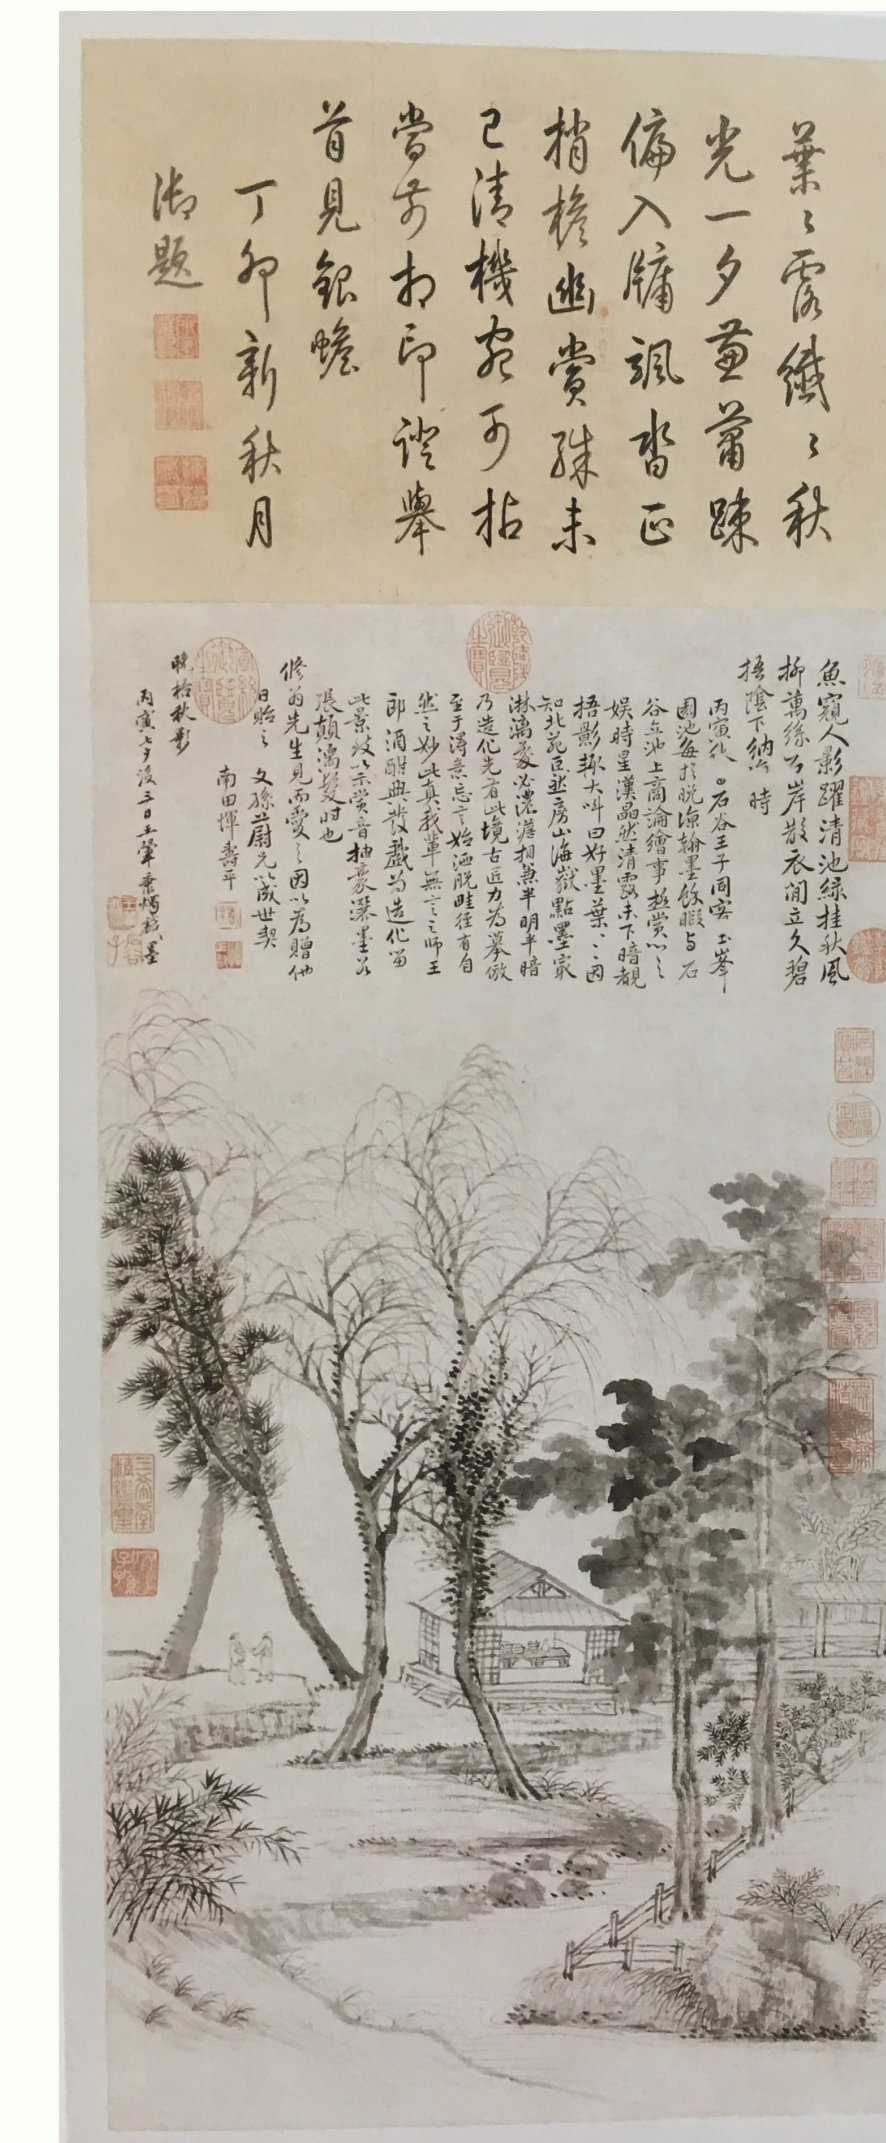 葉〻露纖〻秋
光一夕蕭疎
偏入牖颯沓正
梢檐幽賞殊未
已清機宛可拈
當前相印證舉
首見銀蟾
丁卯新秋月
御題
魚窺人影躍清池綠挂秋風
柳萬絲石岸散衣閒立久碧
梧陰下納涼時
丙寅秋石谷王子同客玉峯
園池每於晚涼翰墨餘暇與石
谷立池上商論繪事極賞心之
娛時星漢晶然清露未下暗覩
梧影輒大叫曰好墨葉〻因
知北苑巨然房山海嶽點墨最
淋漓處必濃澹相兼半明半暗
乃造化先有此境古匠力為摹倣
至于得意忘言始洒脫畦徑有自
然之妙此真我輩無言之師王
郎酒酣興發戲為造化留
此景致以示賞音抽豪灑墨若
張顛濡髮時也
修翁先生見而愛之因以為贈他
日貽之文孫蔚元以成世契
南田惲壽平
晚梧秋影
丙寅七夕後三日王翬秉燭戲墨